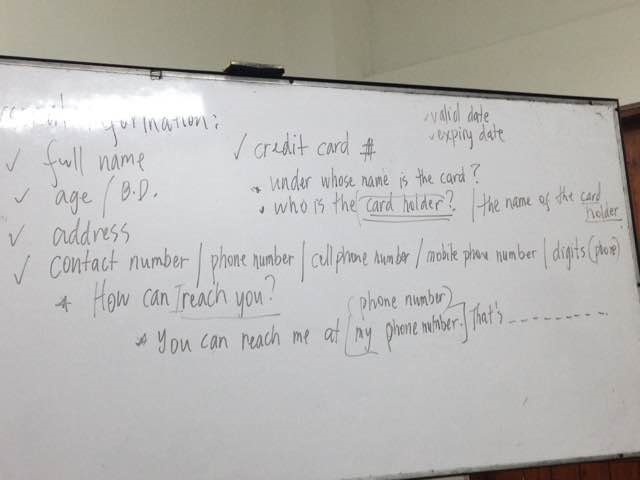 information:
✓ full name
✓ age / B.D.
✓ address
✓ contact number / phone number / cell phone number / mobile phone number / digits (phone)
* How can I reach you?
* You can reach me at [my phone number.] That's _ _ _ _ _ _ _ _ _
(phone number)
✓ credit card #
* under whose name is the card?
* who is the card holder? / the name of the card holder
✓ valid date
✓ expiry date